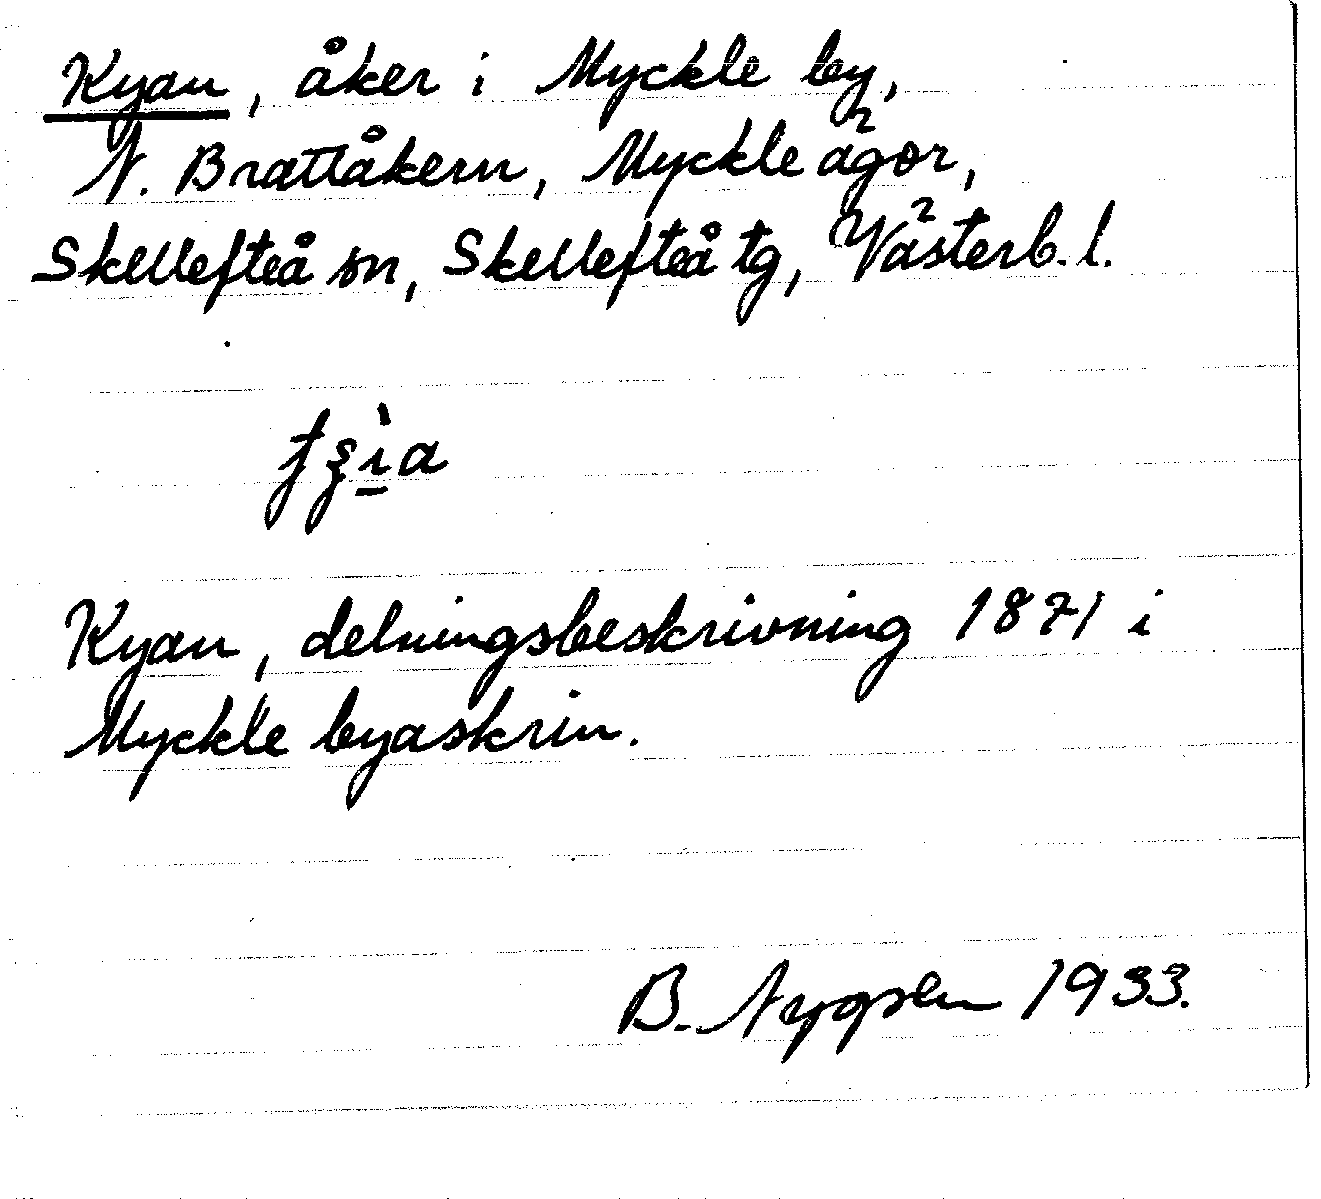 Kyan, åker i Myckle by,
N. Brattåkern, Myckle ägor,
Skellefteå sn, Skellefteå tg, Västerb. l.
Kyan, delningsbeskrivning 1871 i
Myckle byaskrin.
B. 1933.